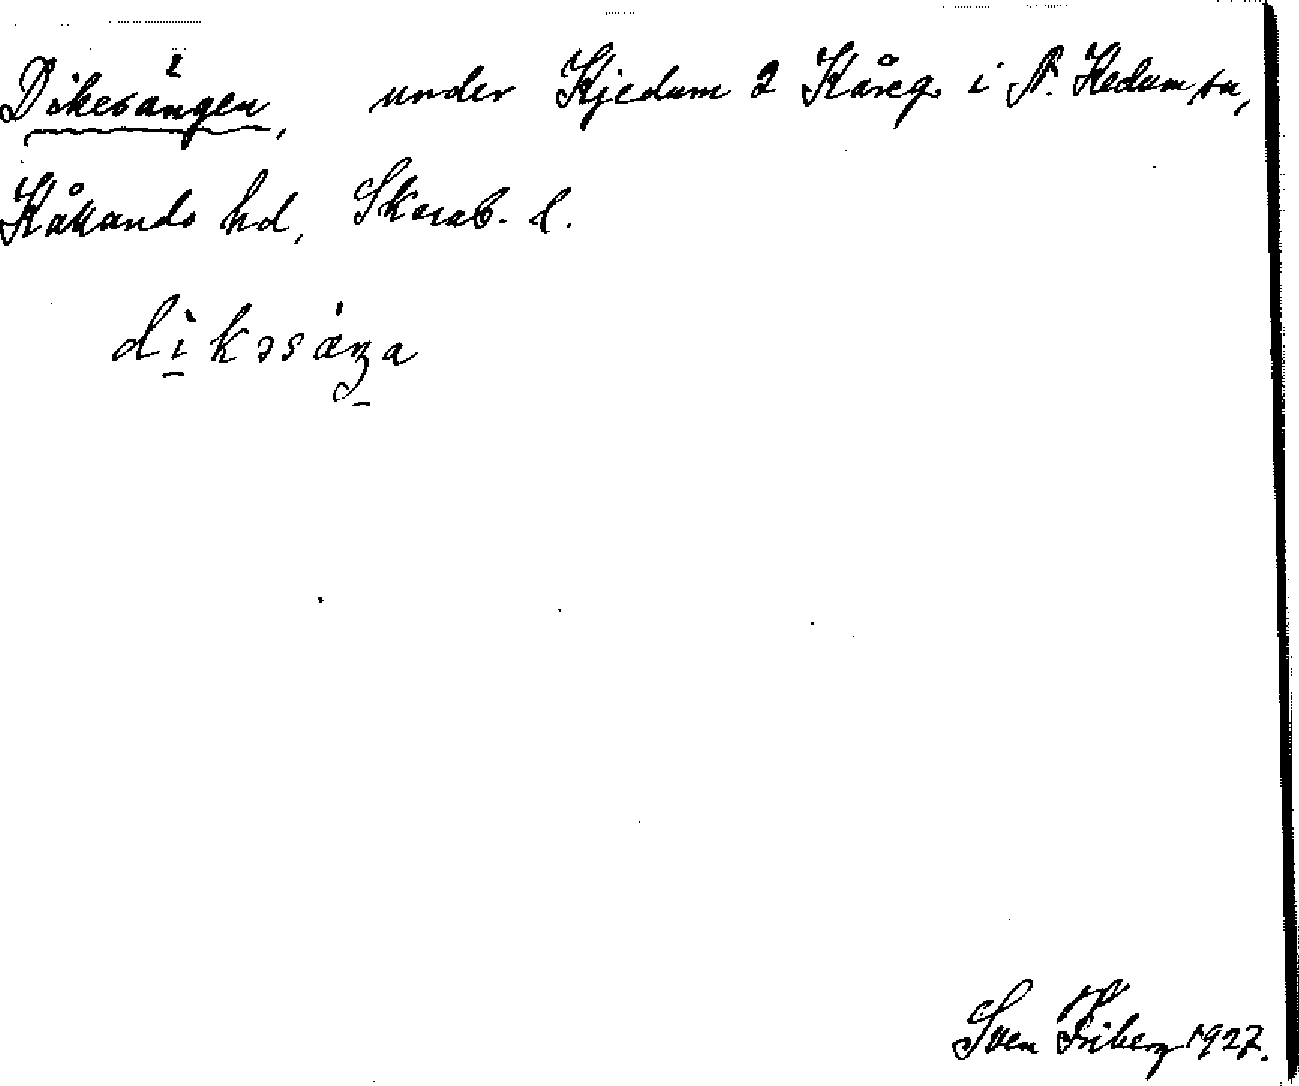 Dikesängen, under Kjedum 2 Kåreg. i N. Kedum sn,
Kållands hd, Skarab. l.
dikəsäŋa
Sven Friberg 1927.